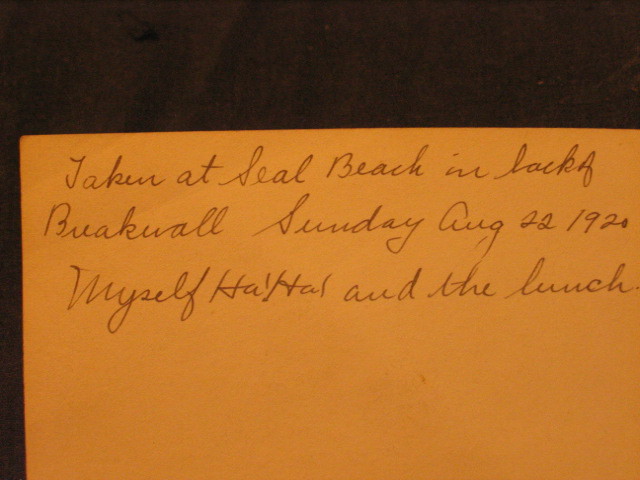 Taken at Seal Beach in back of
Breakwall Sunday Aug 22 1920
Myself Ha! Ha! and the lunch.